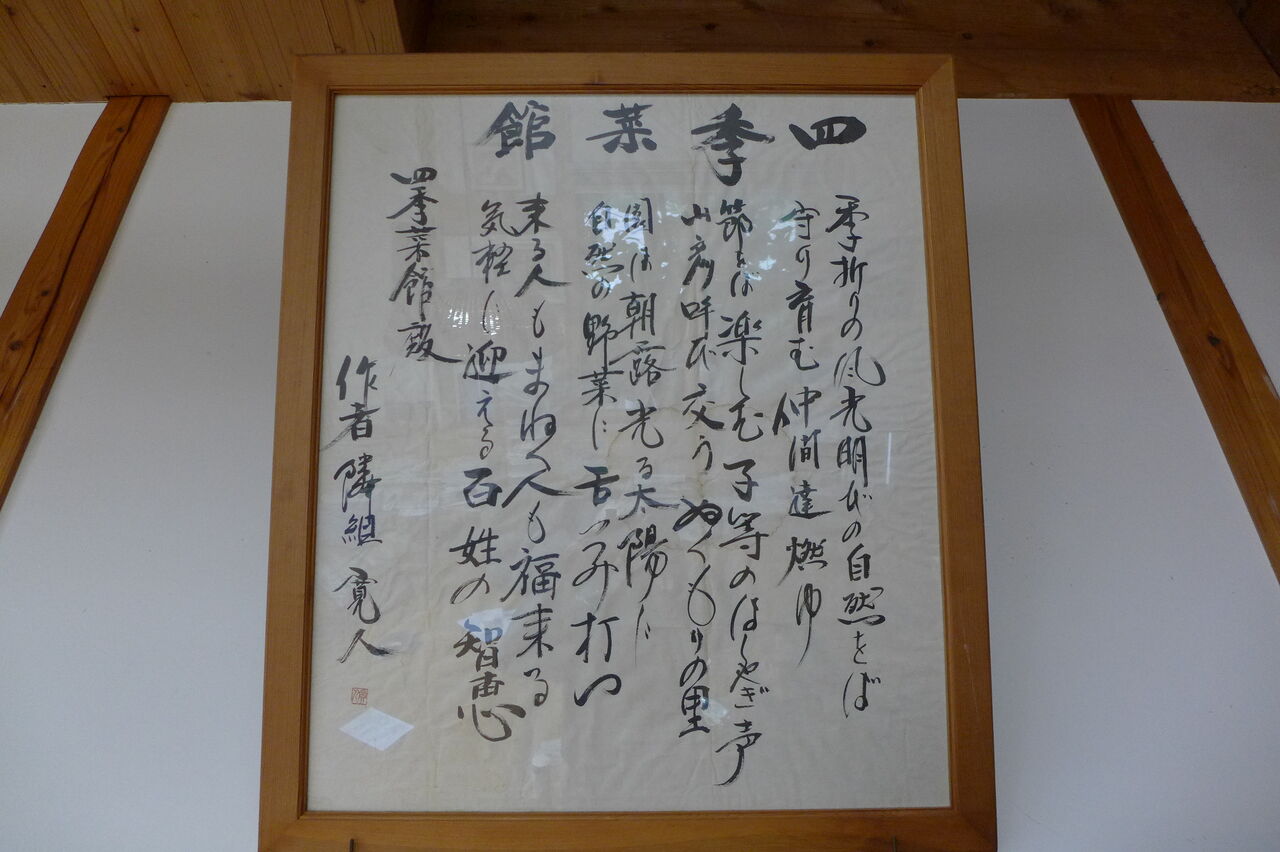 四季菜館
季折りの風光明びの自然をば
守り育む仲間達燃ゆ
節をば楽しむ子等のはしゃぎ声
山彦呼び交うぬくもりの里
園は朝露光る太陽に
自然の野菜に舌つづみ打い
来る人もまねく人も福来る
気軽に迎える百姓の智恵
四季菜館殿
作者 隣組 寛人